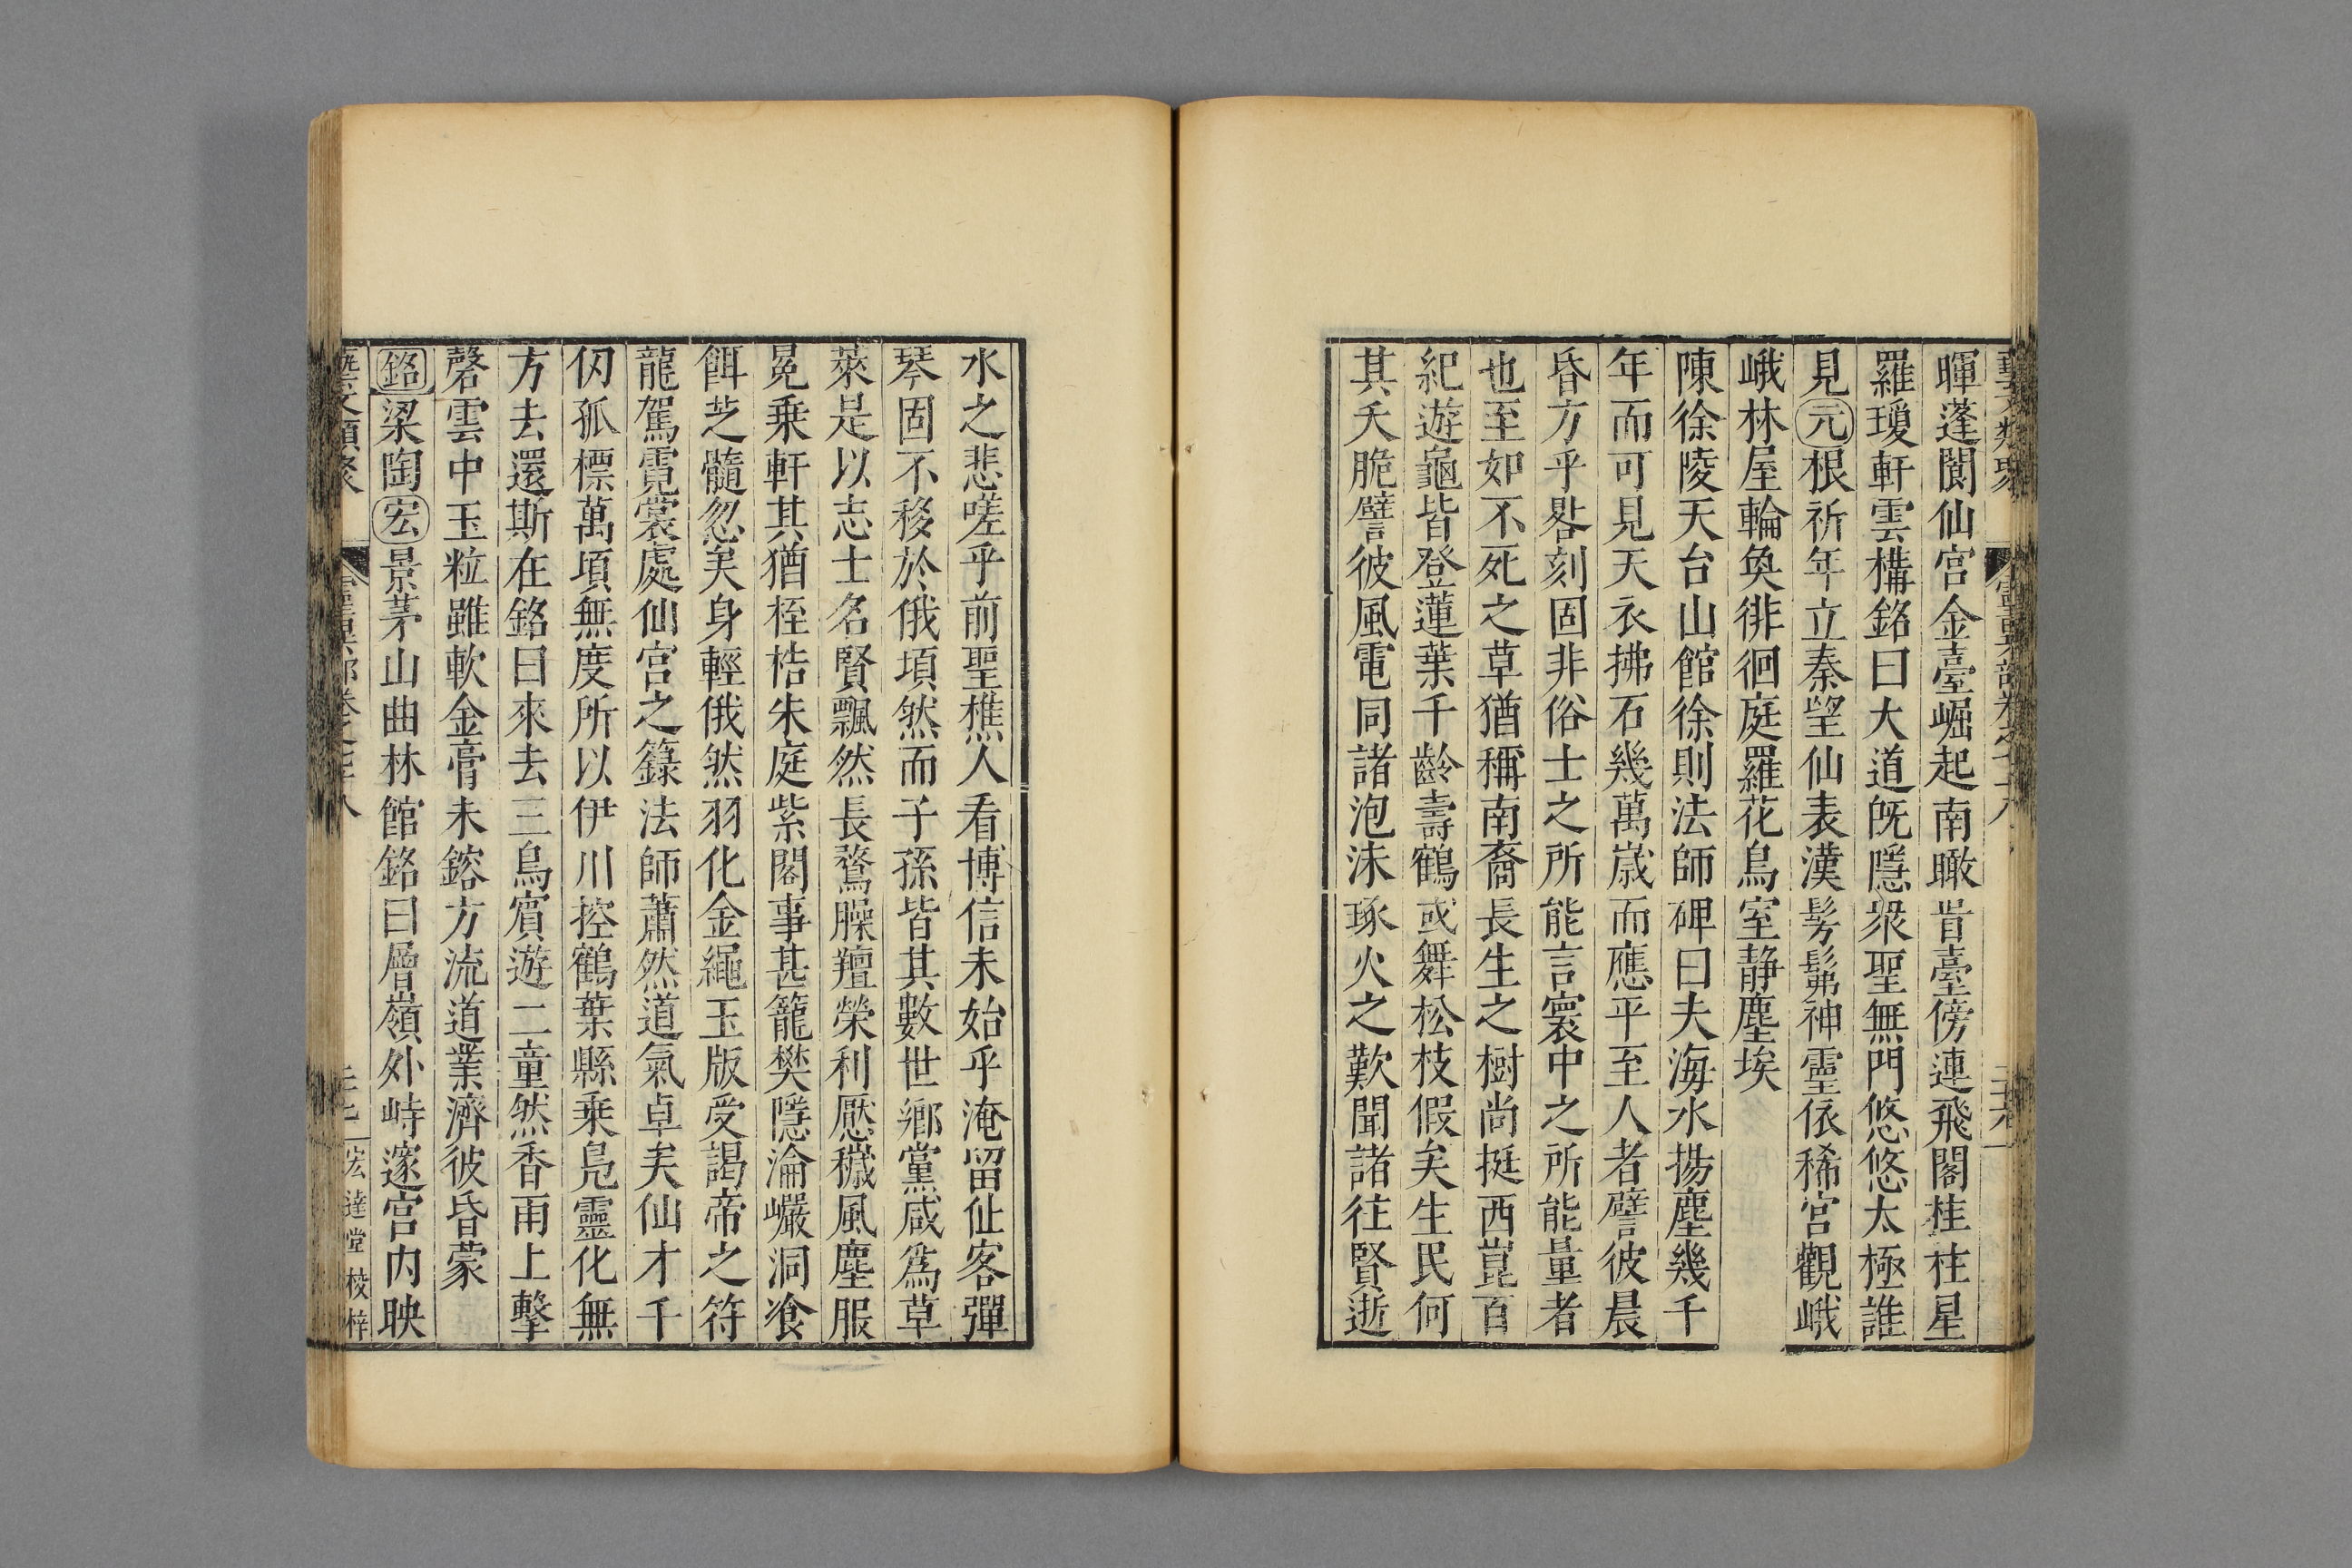 藝文類聚 靈異部卷之七十八 二十六
暉蓬閬仙宮金臺崛起南瞰旹臺傍連飛閣桂柱星
羅瓊軒雲構銘曰大道旣隱衆聖無門悠悠太極誰
見元根祈年立秦望仙表漢髣髴神靈依稀宮觀峨
峨林屋輪奐徘徊庭羅花鳥室靜塵埃
陳徐陵天台山館徐則法師碑曰夫海水揚塵幾千
年而可見天衣拂石幾萬歲而應平至人者譬彼晨
昏方乎晷刻固非俗士之所能言寰中之所能量者
也至如不死之草猶稱南裔長生之樹尚挺西崑百
紀遊龜皆登蓮葉千齡壽鶴或舞松枝假矣生民何
其夭脆譬彼風電同諸泡沫琢火之歎聞諸往賢逝
水之悲嗟乎前聖樵人看博信未始乎淹留仙客彈
琴固不移於俄頃然而子孫皆其數世鄉黨咸爲草
萊是以志士名賢飄然長鶩臊羶榮利厭穢風塵服
冕乗軒其猶桎梏朱庭紫閣事甚籠樊隱淪巖洞飡
餌芝髓忽矣身輕俄然羽化金繩玉版受謁帝之符
龍駕霓裳處仙宮之籙法師蕭然道氣卓矣仙才千
仞孤標萬頃無度所以伊川控鶴葉縣乗鳧靈化無
方去還斯在銘曰來去三鳥賓遊二童然香雨上擊
磬雲中玉粒雖軟金膏未鎔方流道業濟彼昏蒙
銘梁陶宏景茅山曲林館銘曰層嶺外峙邃宮内映
藝文類聚 靈異部卷之七十八 二十七 宏達堂校梓